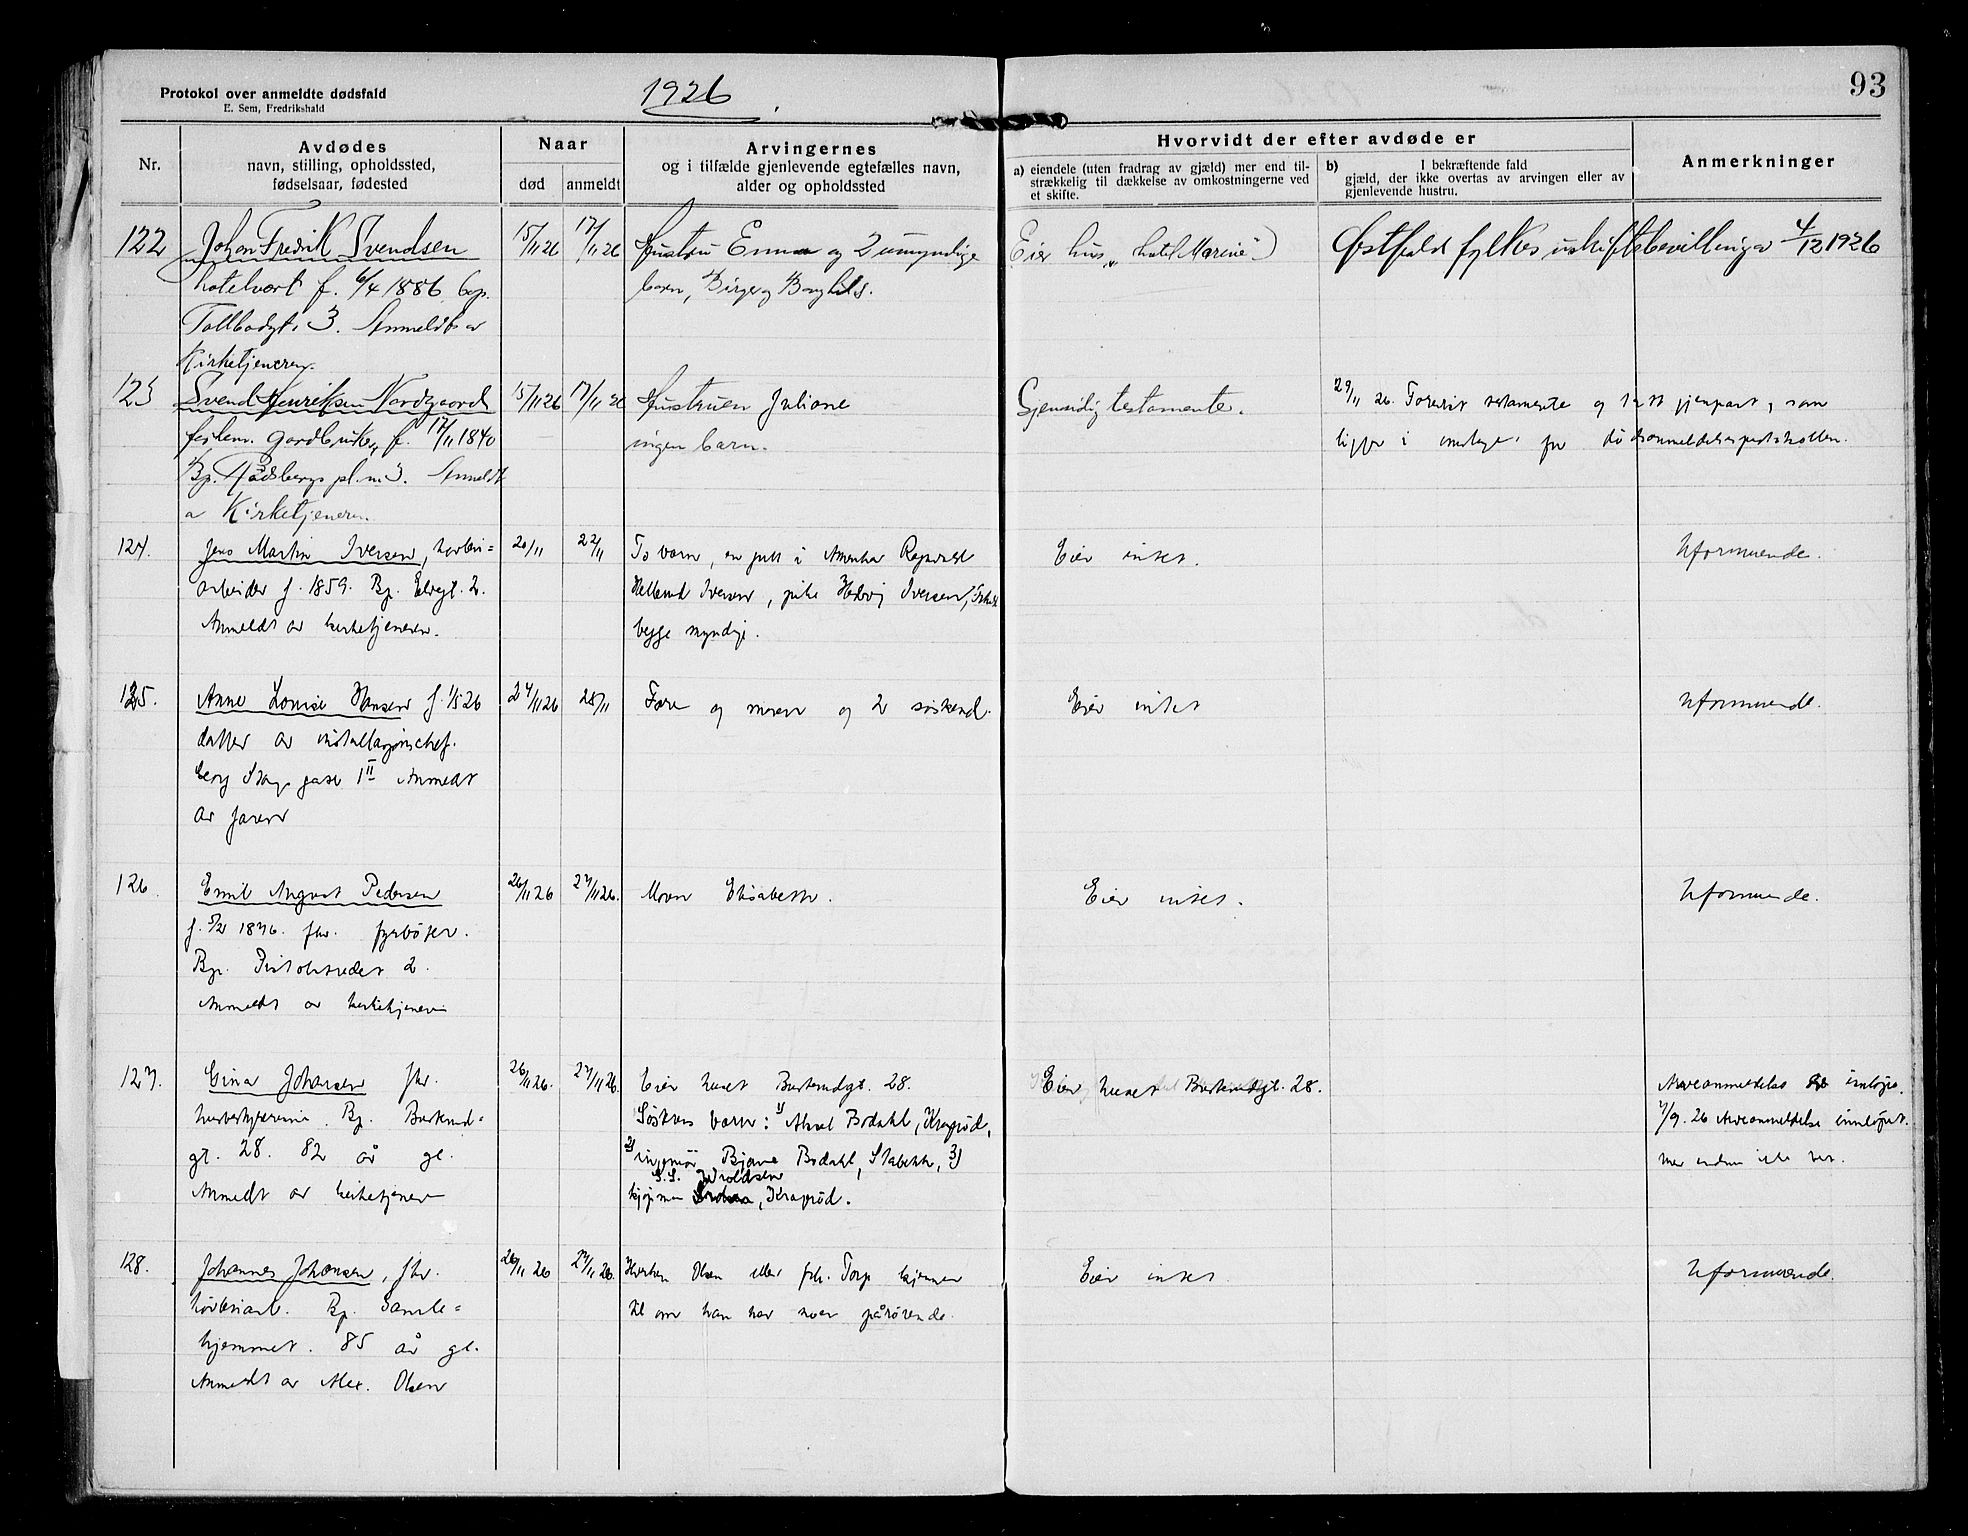 Protokol over anmeldte dødsfald
E. Sem, Fredrikshald
1926
93
Nr.
Avdødes
navn, stilling, opholdssted,
fødselsaar, fødested
Naar
død
anmeldt
Arvingernes
og i tilfælde gjenlevende egtefælles navn,
alder og opholdssted
Hvorvidt der efter avdøde er
a) eiendele (uten fradrag av gjæld) mer end til-
strækkelig til dækkelse av omkostningerne ved
et skifte.
b) I bekræftende fald
gjæld, der ikke overtas av arvingen eller av
gjenlevende hustru.
Anmerkninger
122
Johan Fredrik Svendsen
hotelvært f. 6/4 1886. bop.
Tollbodgt. 3. Anmeldt av
Kirketjeneren.
15/11 26
17/11 26
Hustru Emma og 2 umyndige
barn, Birger og
Eier hus, "hotel Marine"
Østfold fylkes uskiftebevilling av 4/12 1926
123
Svend Henriksen Nordgaard
gardbruker, f. 17/11 1840
Bp. Rødsbergs pl. nr 3. Anmeldt
av Kirketjeneren.
15/11 26
17/11 26
Hustruen Juliane
ingen barn.
Gjensidig testamente.
29/11 26. Forevist testamente og tatt gjenpart, som
ligger i omslaget for dødsanmeldelsesprotokollen.
124.
Jens Martin Iversen, havne-
arbeider f. 1859. Bp. Elvegt. 2.
Anmeldt av kirketjeneren.
20/11
22/11
To barn, en gutt i Amerika
Iversen, pike Hedvig Iversen,
begge myndige.
Eier intet.
Uformuende.
125.
Anne Louise Hansen f. 1/5 26
datter av installasjonschef.
gate 1 II Anmeldt
av faren
24/11 26
25/11
Far og moren og 2 søskend.
Eier intet
Uformuende.
126.
Emil August Pedersen
f. 5/2 1896. fhv. fyrbøter.
Bp. Pistolstredet 2.
Anmeldt av kirketjeneren
26/11 26
27/11 26.
Moren Elisabeth.
Eier intet.
Uformuende.
127.
Gina Johansen fhv.
Bp. Busterud-
gt. 28. 82 år gl.
Anmeldt av kirketjener
26/11 26.
27/11 26.
Eier huset Busterudgt. 28.
Søsters barn: 1) Aksel Bodahl, Kragerød,
2) ingeniør Bjarne Bodahl, Stabekk, 3)
S. S. Woldsen
kjøpmann, Kragerød.
Eier huset Busterudgt. 28.
Arveanmeldelse innløpet.
7/9. 26 Arveanmeldelse innløpet.
128.
Johannes Johansen, fhv.
Bp. Gamle-
hjemmet. 85 år gl.
Anmeldt av Alex. Olsen
26/11 26
27/11 26.
Hverken Olsen eller frk. Torp kjenner
til om han har noen pårørende.
Eier intet.
Uformuende.